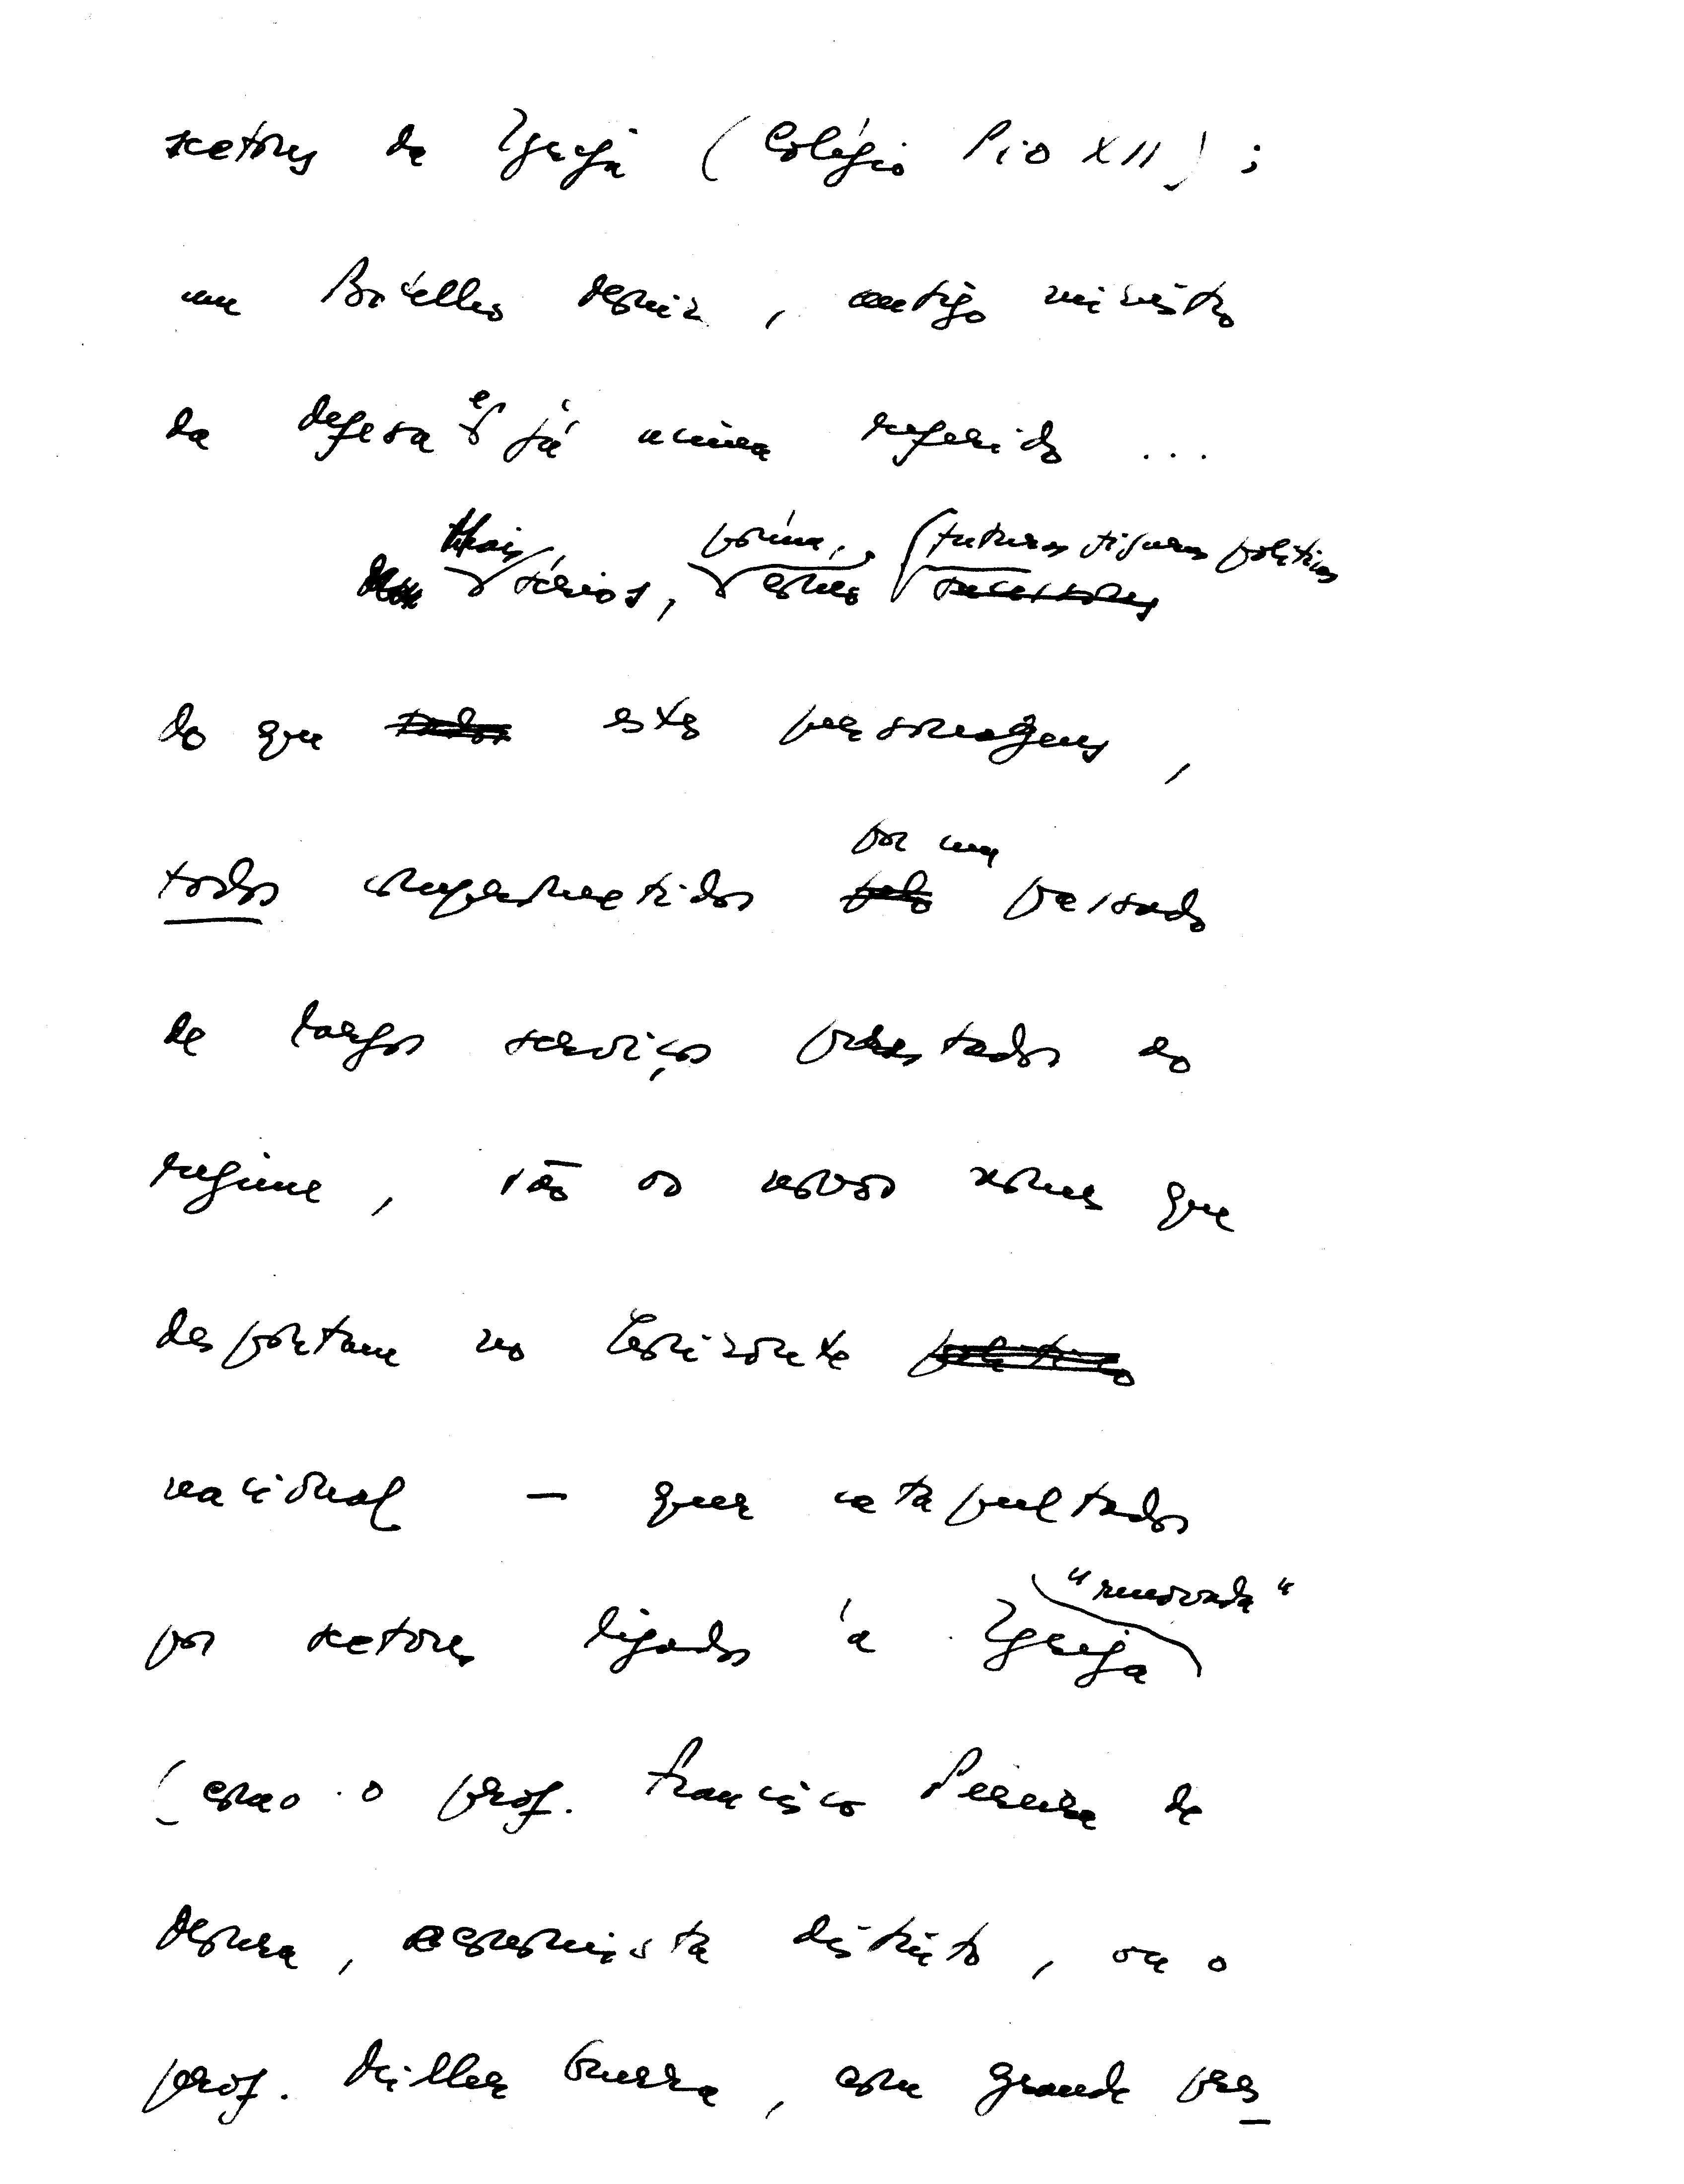 sectores da Igreja (Colégio Pio XII);
um Botelho Moniz, antigo ministro
da defesa e já acima referido ...
Mais sérios, porém, como futuras figuras políticas
do que estes personagens,
todos comprometidos por um passado
de largos serviços prestados ao
regime, são os novos nomes que
despontam no horizonte
nacional — quer catapultados
por sectores ligados à Igreja "renovada"
(como o prof. Francisco Pereira de
Moura, economista distinto, ou o
prof. Miller Guerra, com grande pres